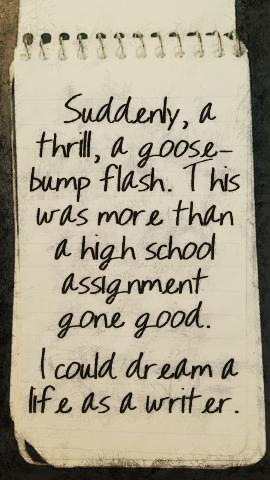 Suddenly, a
thrill, a goose-
bump flash. This
was more than
a high school
assignment
gone good.
I could dream a
life as a writer.